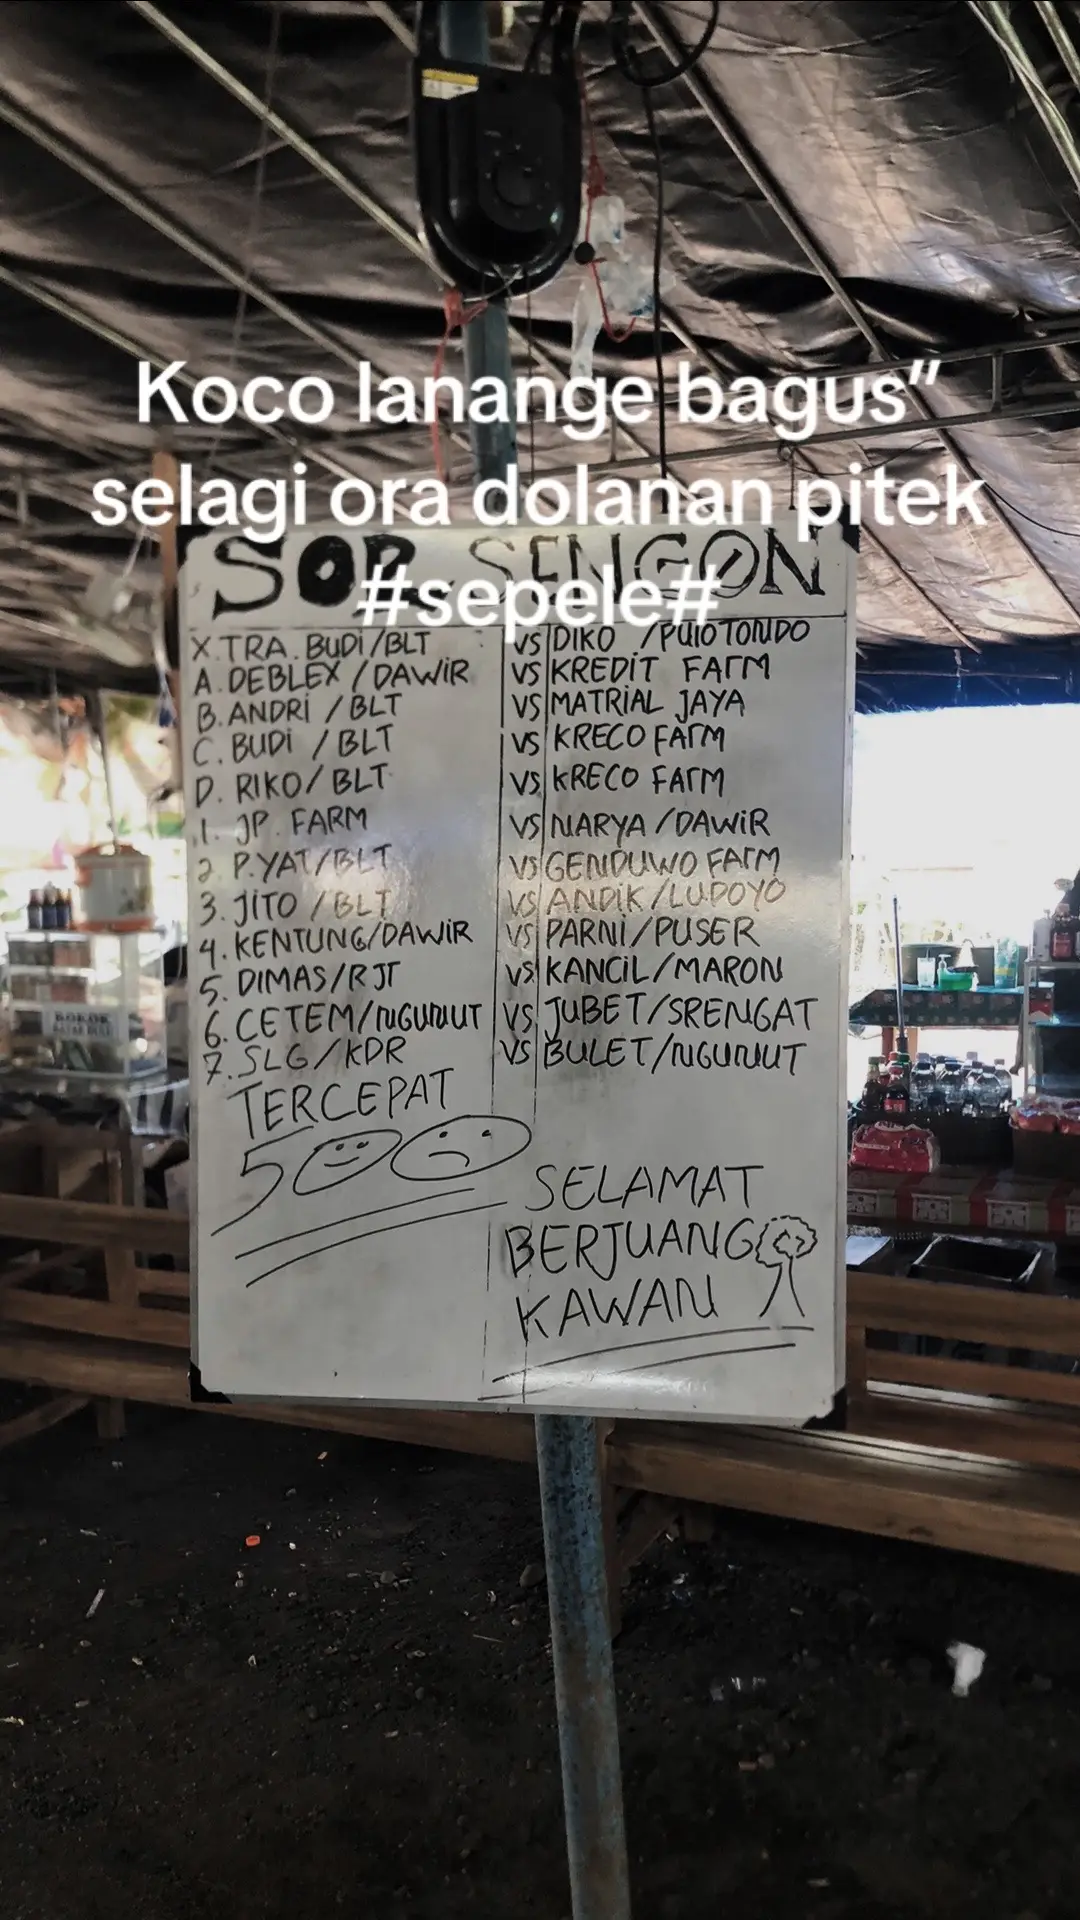 Koco lanange bagus”
selagi ora dolanan pitek
#sepele#
SOR SENGON
X.TRA. BUDI/BLT VS DIKO /PULOTONDO
A. DEBLEX/DAWIR VS KREDIT FARM
B. ANDRI /BLT VS MATRIAL JAYA
C. BUDI /BLT VS KRECO FARM
D. RIKO/BLT VS KRECO FARM
1. JP. FARM VS NARYA/DAWIR
2. P.YAT/BLT VS GENDUWO FARM
3. JITO /BLT VS ANDIK/LUDOYO
4. KENTUNG/DAWIR VS PARNI/PUSER
5. DIMAS/RJT VS KANCIL/MARON
6. CETEM/NGUNUT VS JUBET/SRENGAT
7. SLG/KDR VS BULET/NGUNUT
TERCEPAT
500
SELAMAT
BERJUANG
KAWAN